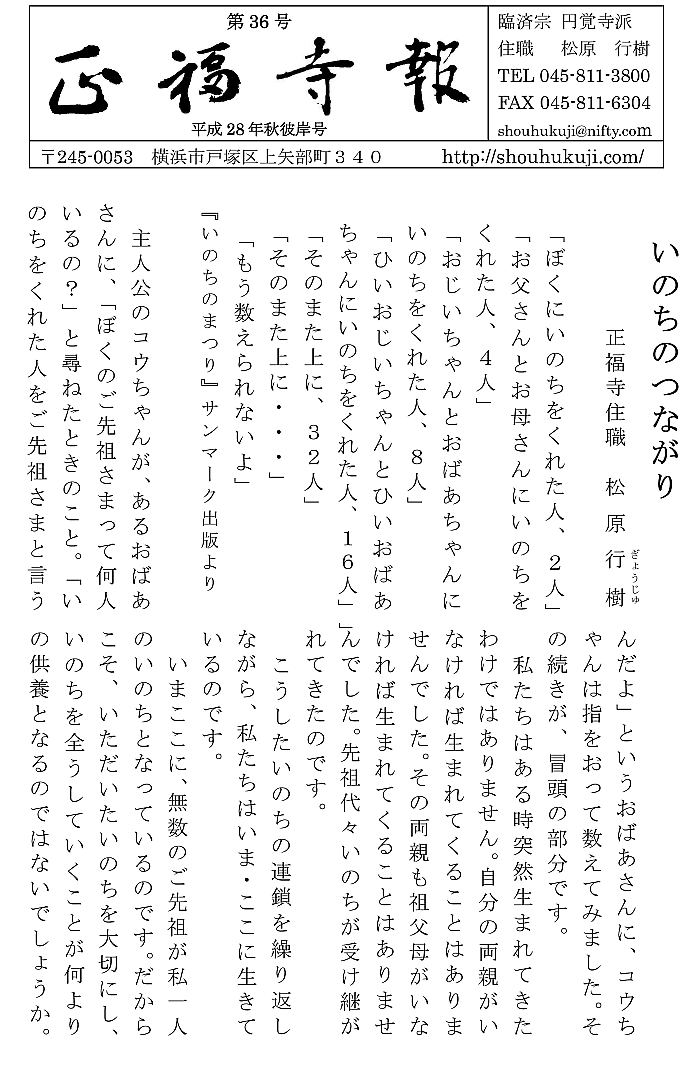 第36号
正福寺報
平成28年秋彼岸号
臨済宗 円覚寺派
住職 松原 行樹
TEL 045-811-3800
FAX 045-811-6304
shouhukuji@nifty.com
〒245-0053 横浜市戸塚区上矢部町３４０ http://shouhukuji.com/
いのちのつながり
正福寺住職 松原行樹
ぎょうじゅ
「ぼくにいのちをくれた人、２人」
「お父さんとお母さんにいのちを
くれた人、４人」
「おじいちゃんとおばあちゃんに
いのちをくれた人、８人」
「ひいおじいちゃんとひいおばあ
ちゃんにいのちをくれた人、１６人」」
「そのまた上に、３２人」
「そのまた上に・・・」
「もう数えられないよ」
『いのちのまつり』サンマーク出版より
主人公のコウちゃんが、あるおばあ
さんに、「ぼくのご先祖さまって何人
いるの？」と尋ねたときのこと。「い
のちをくれた人をご先祖さまと言う
んだよ」というおばあさんに、コウち
ゃんは指をおって数えてみました。そ
の続きが、冒頭の部分です。
私たちはある時突然生まれてきた
わけではありません。自分の両親がい
なければ生まれてくることはありま
せんでした。その両親も祖父母がいな
ければ生まれてくることはありませ
んでした。先祖代々いのちが受け継が
れてきたのです。
こうしたいのちの連鎖を繰り返し
ながら、私たちはいま・ここに生きて
いるのです。
いまここに、無数のご先祖が私一人
のいのちとなっているのです。だから
こそ、いただいたいのちを大切にし、
いのちを全うしていくことが何より
の供養となるのではないでしょうか。